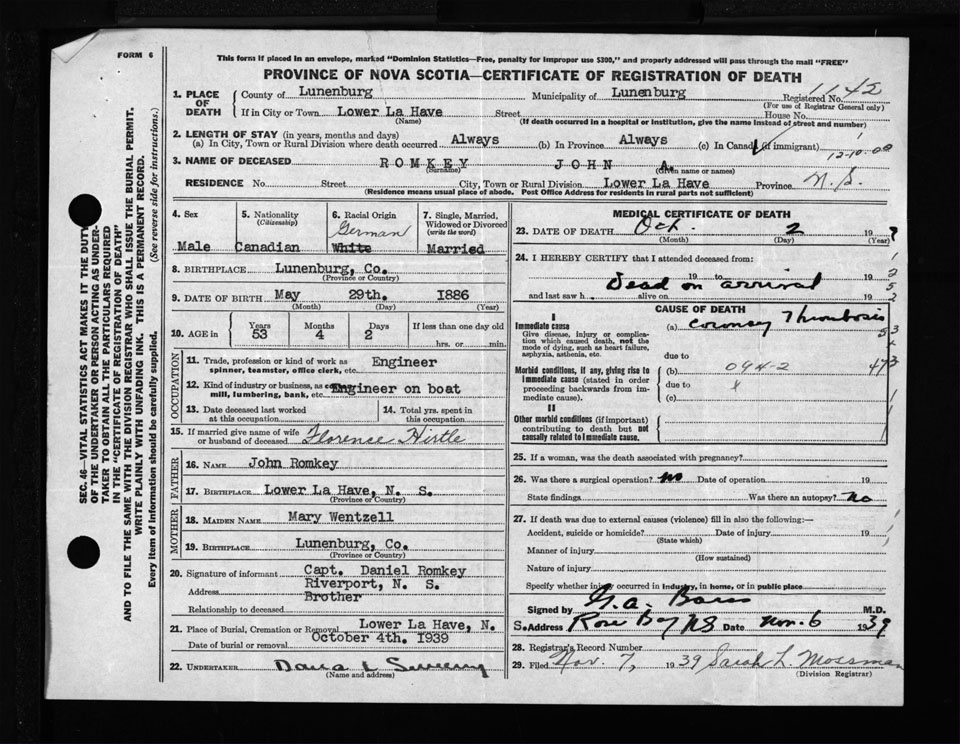 FORM 6
This form if placed in an envelope, marked "Dominion Statistics—Free, penalty for improper use $300," and properly addressed will pass through the mail "FREE"
PROVINCE OF NOVA SCOTIA—CERTIFICATE OF REGISTRATION OF DEATH
1142
1. PLACE OF DEATH County of Lunenburg Municipality of Lunenburg Registered No.
(For use of Registrar General only)
If in City or Town Lower La Have Street House No.
(Name) (If death occurred in a hospital or institution, give the name instead of street and number)
2. LENGTH OF STAY (in years, months and days)
(a) In City, Town or Rural Division where death occurred Always (b) In Province Always (c) In Canada (if immigrant)
3. NAME OF DECEASED ROMKEY JOHN A.
(Surname) (Given name or names)
RESIDENCE No. Street City, Town or Rural Division Lower La Have Province N.S.
(Residence means usual place of abode. Post Office Address for residents in rural parts not sufficient)
4. Sex Male
5. Nationality (Citizenship) Canadian
6. Racial Origin German White
7. Single, Married, Widowed or Divorced (write the word) Married
8. BIRTHPLACE Lunenburg, Co.
(Province or Country)
9. DATE OF BIRTH May 29th. 1886
(Month) (Day) (Year)
10. AGE in Years 53 Months 4 Days 2 If less than one day old
hrs. or min.
OCCUPATION
11. Trade, profession or kind of work as spinner, teamster, office clerk, etc. Engineer
12. Kind of industry or business, as mill, lumbering, bank, etc. Engineer on boat
13. Date deceased last worked at this occupation
14. Total yrs. spent in this occupation
15. If married give name of wife or husband of deceased Florence Hirtle
FATHER
16. NAME John Romkey
17. BIRTHPLACE Lower La Have, N. S.
(Province or Country)
MOTHER
18. MAIDEN NAME Mary Wentzell
19. BIRTHPLACE Lunenburg, Co.
(Province or Country)
20. Signature of informant Capt. Daniel Romkey
Address Riverport, N. S.
Relationship to deceased Brother
21. Place of Burial, Cremation or Removal Lower La Have, N. S.
Date of burial or removal October 4th. 1939
22. UNDERTAKER
(Name and address)
MEDICAL CERTIFICATE OF DEATH
23. DATE OF DEATH Oct. 2 19
(Month) (Day) (Year)
24. I HEREBY CERTIFY that I attended deceased from:
19 to 19
Dead on arrival
and last saw h alive on 19
CAUSE OF DEATH
I
Immediate cause (a) Coronary Thrombosis
Give disease, injury or complication which caused death, not the mode of dying, such as heart failure, asphyxia, asthenia, etc.
due to
Morbid conditions, if any, giving rise to immediate cause (stated in order proceeding backwards from immediate cause). (b) 094-2
due to
(c)
II
Other morbid conditions (if important) contributing to death but not causally related to immediate cause.
25. If a woman, was the death associated with pregnancy?
26. Was there a surgical operation? No Date of operation 19
State findings Was there an autopsy? No
27. If death was due to external causes (violence) fill in also the following:—
Accident, suicide or homicide? Date of injury 19
(State which)
Manner of injury
(How sustained)
Nature of injury
Specify whether injury occurred in industry, in home, or in public place
Signed by M.D.
Address Rose Bay NS Date Nov. 6 1939
28. Registrar's Record Number
29. Filed Nov. 7, 1939 Sarah L. Mossman
(Division Registrar)
SEC. 46—VITAL STATISTICS ACT MAKES IT THE DUTY
OF THE UNDERTAKER OR PERSON ACTING AS UNDERTAKER TO OBTAIN ALL THE PARTICULARS REQUIRED
IN THE "CERTIFICATE OF REGISTRATION OF DEATH"
AND TO FILE THE SAME WITH THE DIVISION REGISTRAR WHO SHALL ISSUE THE BURIAL PERMIT.
WRITE PLAINLY WITH UNFADING INK. THIS IS A PERMANENT RECORD.
Every item of information should be carefully supplied. (See reverse side for instructions.)